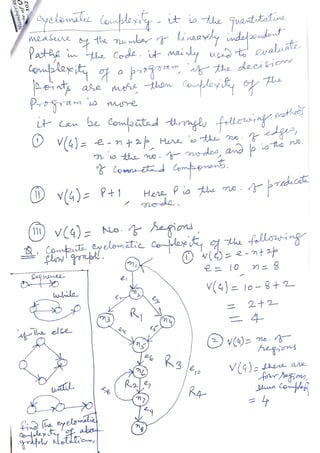 Cyclomatic Complexity - it is the quantitative
measure of the number of linearly independent
Paths in the code. it mainly used to evaluate
complexity of a program, if the decision
points are more, then complexity of the
Program is more.
it can be computed through following methods
① V(G) = e - n + 2p, Here is the no. of edges,
n is the no. of nodes, and p is the no.
of connected components.
② V(G) = P+1, Here P is the no. of predicate
node.
③ V(G) = No. of Regions.
Q. Compute cyclomatic complexity of the following
flow graph.
① V(G) = e - n + 2p
e = 10, n = 8
V(G) = 10 - 8 + 2
= 2 + 2
= 4
② V(G) = no. of
regions
V(G) = there are
four regions,
thus complexity
= 4
sequence
while
if the else
until
find the cyclomatic
complexity of above
graph Notation,
n1
e1
n2
n3
R1
n4
n5
e6
n6
R2
e7
e8
n7
e9
n8
R3
e10
R4